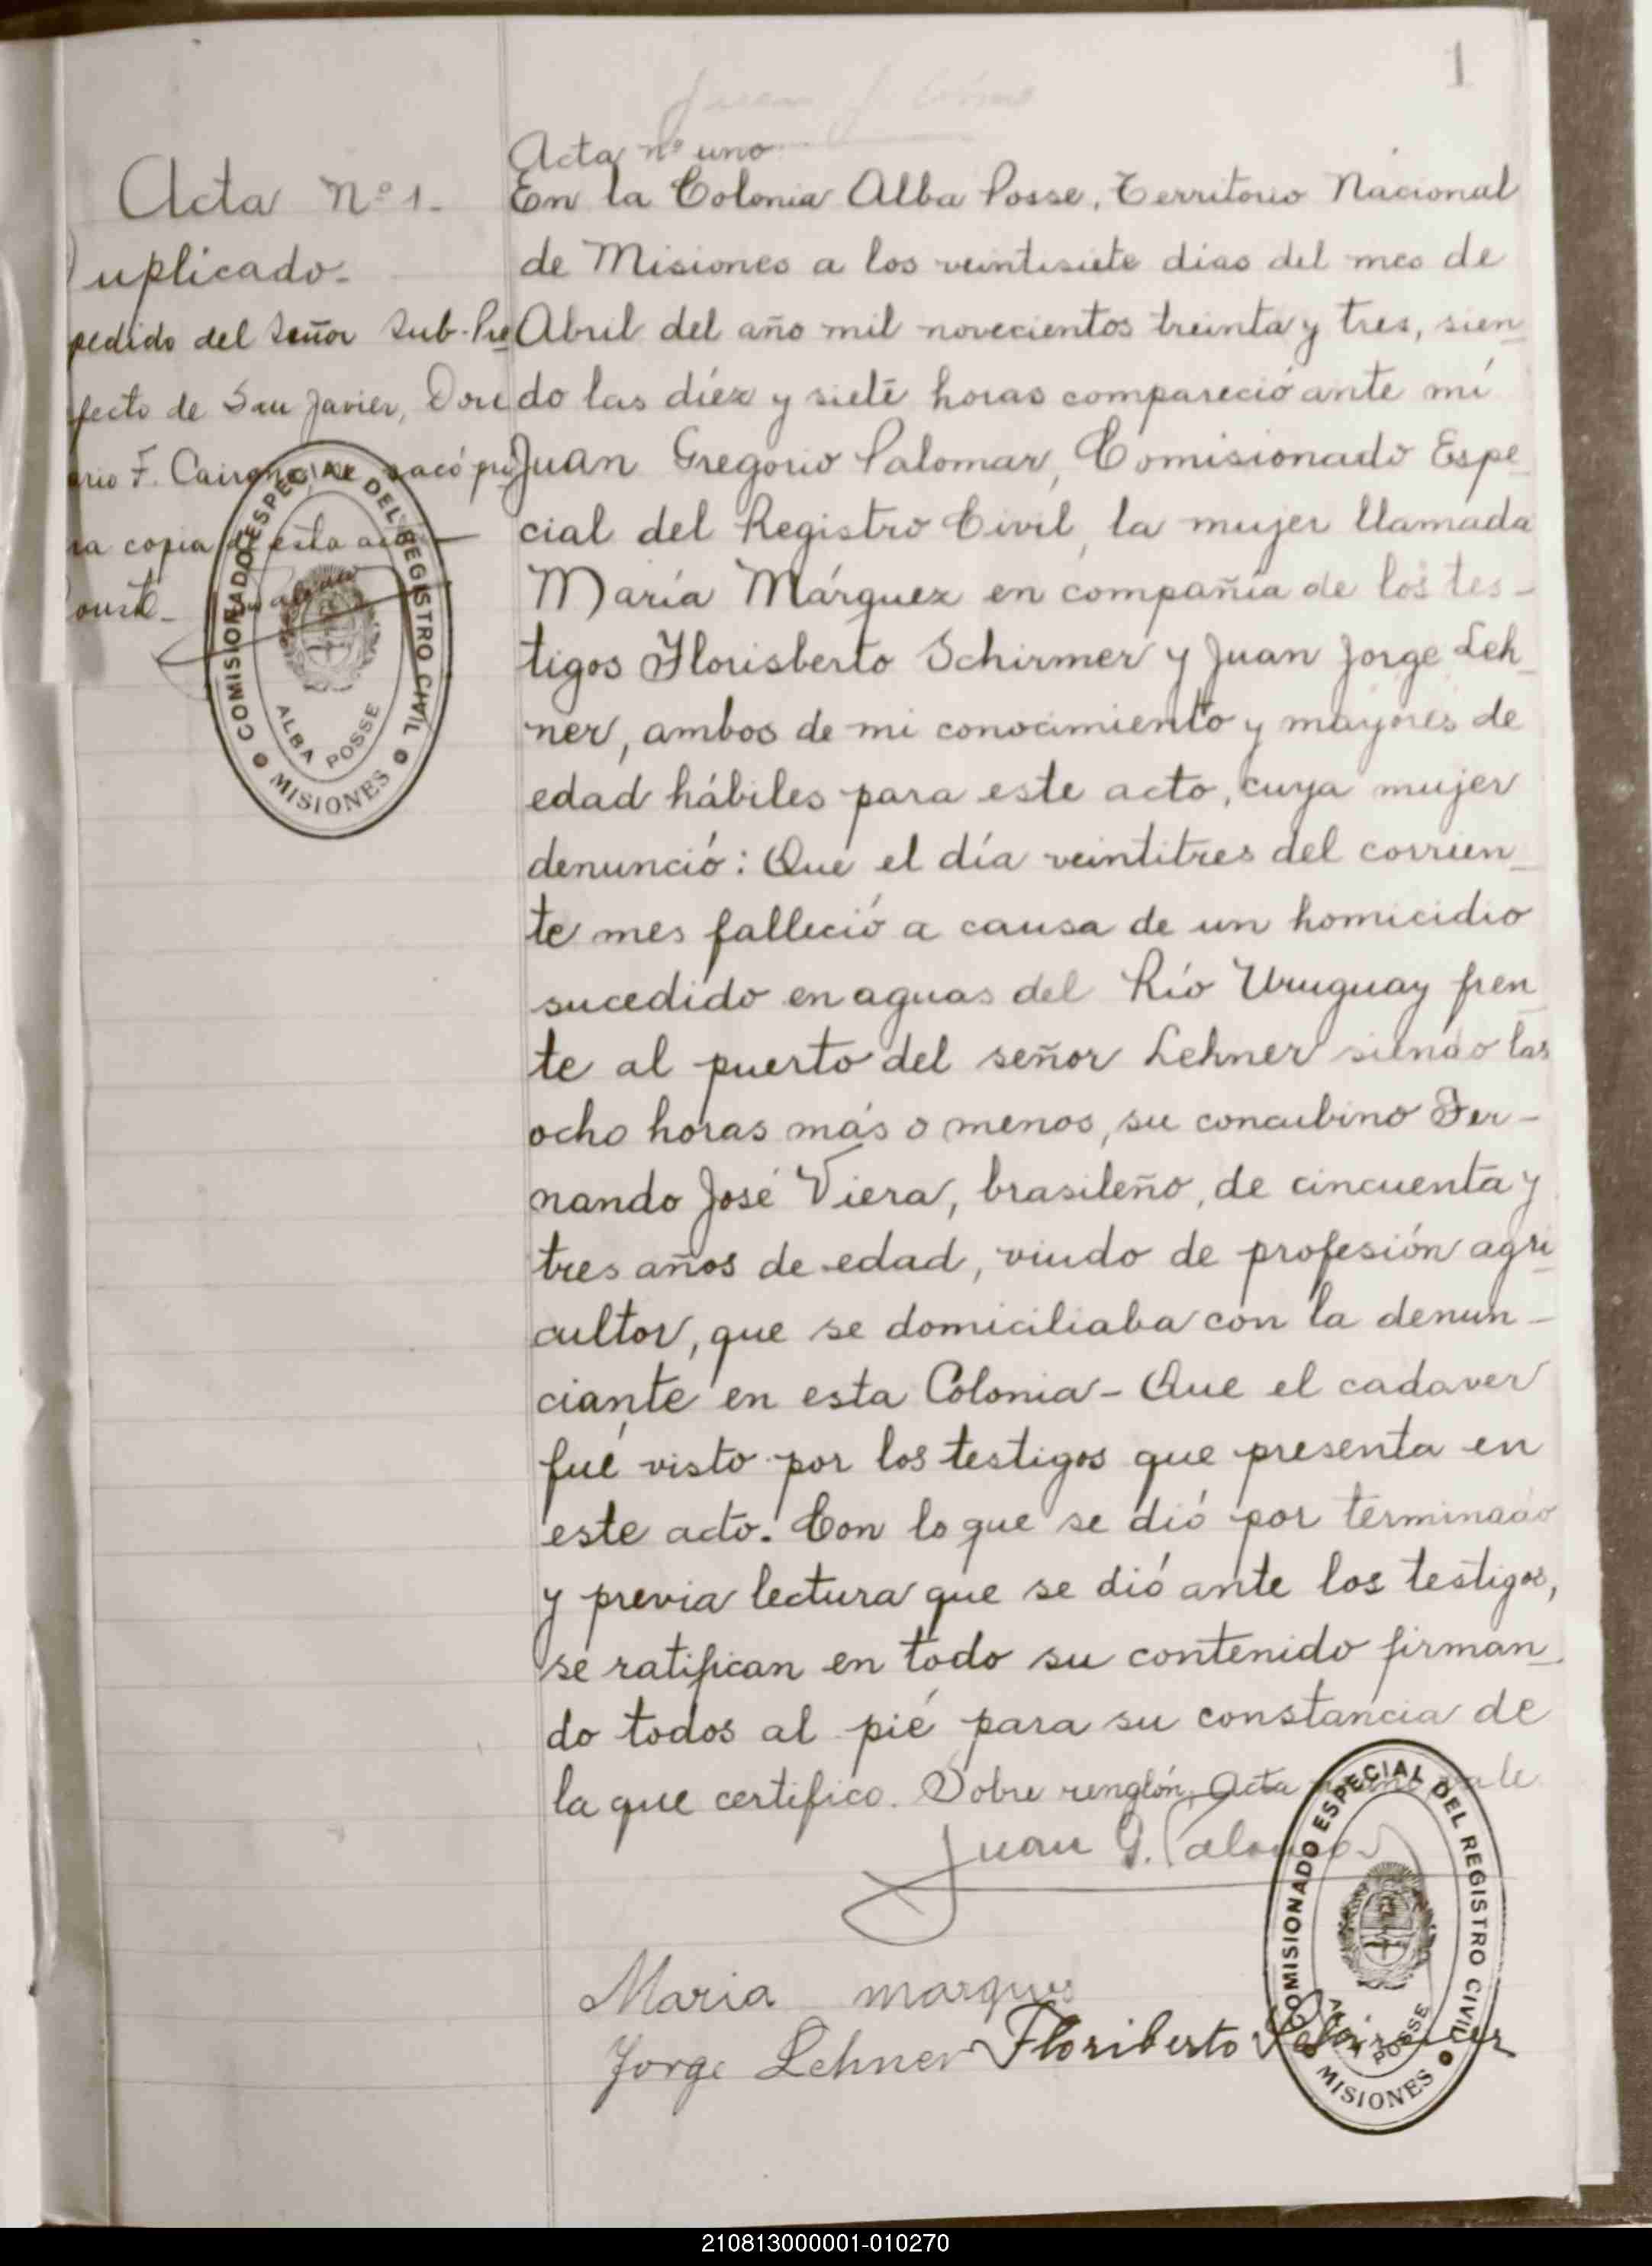 1
Acta nº uno
Acta Nº 1.
uplicado.
pedido del Señor Sub-Pre
fecto de San Javier, Don
rio F. sacó pri
ra copia de esta
COMISIONADO ESPECIAL DEL REGISTRO CIVIL
ALBA POSSE
MISIONES
En la Colonia Alba Posse, Territorio Nacional
de Misiones a los veintisiete dias del mes de
Abril del año mil novecientos treinta y tres, sien
do las diéz y siete horas compareció ante mí
Juan Gregorio Palomar, Comisionado Espe
cial del Registro Civil, la mujer llamada
María Márquez en compañía de los tes-
tigos Florisberto Schirmer y Juan Jorge Leh
ner, ambos de mi conocimiento y mayores de
edad hábiles para este acto, cuya mujer
denunció: Que el día veintitres del corrien
te mes falleció a causa de un homicidio
sucedido en aguas del Río Uruguay fren
te al puerto del señor Lehner siendo las
ocho horas más o menos, su concubino Fer-
nando José Viera, brasileño, de cincuenta y
tres años de edad, viudo de profesión agri
cultor, que se domiciliaba con la denun-
ciante en esta Colonia- Que el cadaver
fué visto por los testigos que presenta en
este acto. Con lo que se dió por terminado
y previa lectura que se dió ante los testigos,
se ratifican en todo su contenido firman
do todos al pié para su constancia de
la que certifico. Sobre renglón, Acta nº uno vale
Juan G. Palomar
Maria marques
Jorge Lehner Floriberto Schirmer
COMISIONADO ESPECIAL DEL REGISTRO CIVIL
ALBA POSSE
MISIONES
210813000001-010270